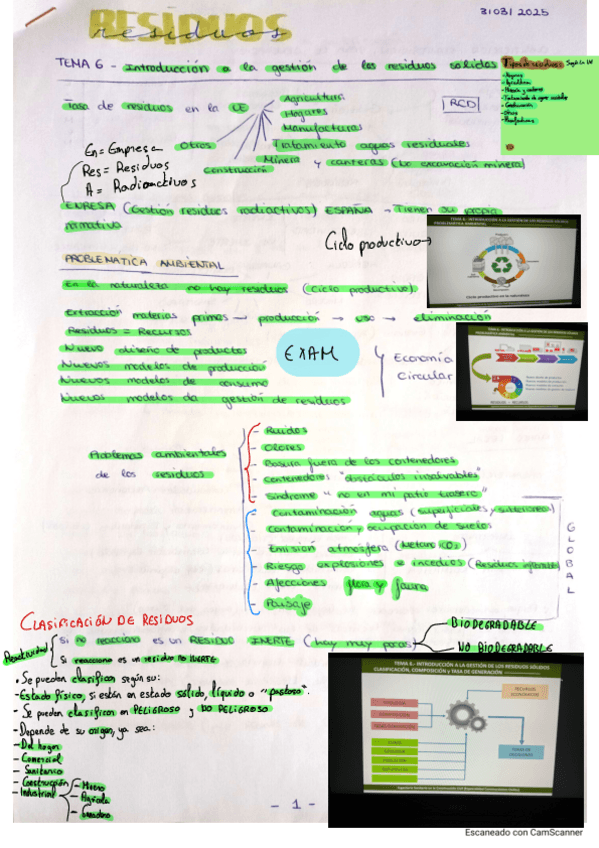 RESIDUOS
residuos
31031 2025
TEMA 6 - Introducción a la gestión de los residuos solidos
Tipos de residuos Según la UE
- Hogares
- Agricultura
- Minería y canteras
- Tratamiento de aguas
- Construcción
- Otros
- Manufacturas
Tasa de residuos en la UE
Agricultura
Hogares
Manufacturas
RCD
Otros
Tratamiento aguas residuales
Construcción
Minera y canteras (La excavación minera)
En = Empresa
Res = Residuos
A = Radioactivos
ENRESA (Gestión residuos radiactivos) ESPAÑA - Tienen su propia
normativa
Ciclo productivo →
TEMA 6.- INTRODUCCIÓN A LA GESTIÓN DE LOS RESIDUOS SÓLIDOS
PROBLEMÁTICA AMBIENTAL
Ciclo productivo en la naturaleza
PROBLEMATICA AMBIENTAL
En la naturaleza no hay residuos (Ciclo productivo).
Extracción materias primas → producción → uso → eliminación
Residuos = Recursos
Nuevo diseño de productos
Nuevos modelos de producción
Nuevos modelos de consumo
Nuevos modelos da gestión de residuos
EXAM
Economía
Circular
RESIDUO → RECURSO
Problemas ambientales
de los residuos
- Ruidos
- Olores
- Basura fuera de los contenedores
- Contenedores "obstáculos insalvables"
- Síndrome "no en mi patio trasero"
- Contaminación aguas (superficiales y subterráneas)
- Contaminación y ocupación de suelos
- Emisión atmósfera (Metano y CO2)
- Riesgo explosiones e incedios (Residuos inflamables)
- Afecciones flora y fauna
- Paisaje
GLOBAL
CLASIFICACIÓN DE RESIDUOS
Reactividad
Si no reacciona es un RESIDUO INERTE (hay muy pocos)
BIODEGRADABLE
NO BIODEGRADABLE
Si reacciona es un residuo no INERTE
• Se pueden clasificar según su:
- Estado físico, si están en estado sólido, líquido o "pastoso".
- Se pueden clasificar en PELIGROSO y NO PELIGROSO
- Depende de su origen, ya sea:
- Del hogar
- Comercial
- Sanitario
- Construcción
- Industrial
- Minero
- Agrícola
- Ganadero
TEMA 6.- INTRODUCCIÓN A LA GESTIÓN DE LOS RESIDUOS SÓLIDOS
CLASIFICACIÓN, COMPOSICIÓN Y TASA DE GENERACIÓN
- 1 -
Escaneado con CamScanner